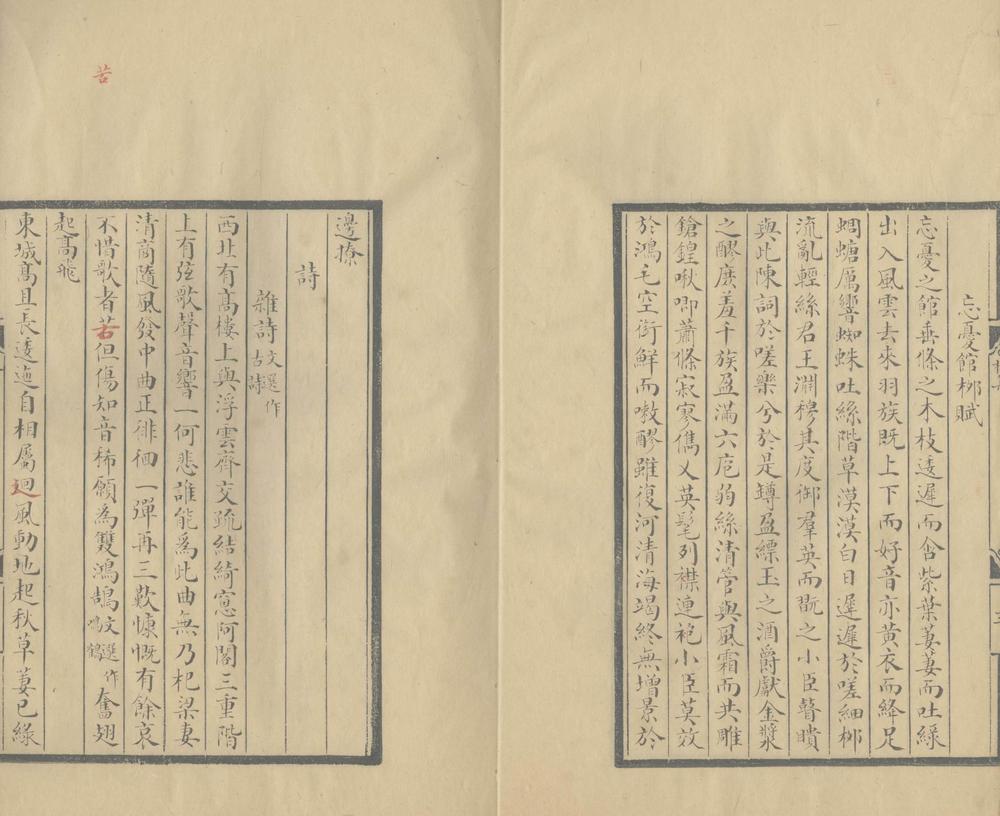 忘憂館栁賦
忘憂之館垂條之木枝逶遲而含紫葉萋萋而吐綠
出入風雲去來羽族既上下而好音亦黃衣而絳足
蜩螗厲響蜘蛛吐絲階草漠漠白日遲遲於嗟細栁
流亂輕絲君王淵穆其度御羣英而翫之小臣瞽聵
與此陳詞於嗟樂兮於是罇盈縹玉之酒爵獻金漿
之醪庶羞千族盈滿六庖弱絲清管與風霜而共雕
鎗鍠啾唧蕭條寂寥儁乂英髦列襟連袍小臣莫效
於鴻毛空銜鮮而嗽醪雖復河清海竭終無增景於
邊撩
詩
雜詩文選作古詩
西北有高樓上與浮雲齊交疏結綺窓阿閣三重階
上有弦歌聲音響一何悲誰能為此曲無乃杞梁妻
清商隨風發中曲正徘徊一彈再三歎慷慨有餘哀
不惜歌者苦但傷知音稀願為雙鴻鵠文選作鳴鶴奮翅
起高飛
東城高且長逶迤自相屬迴風動地起秋草萋已綠
苦